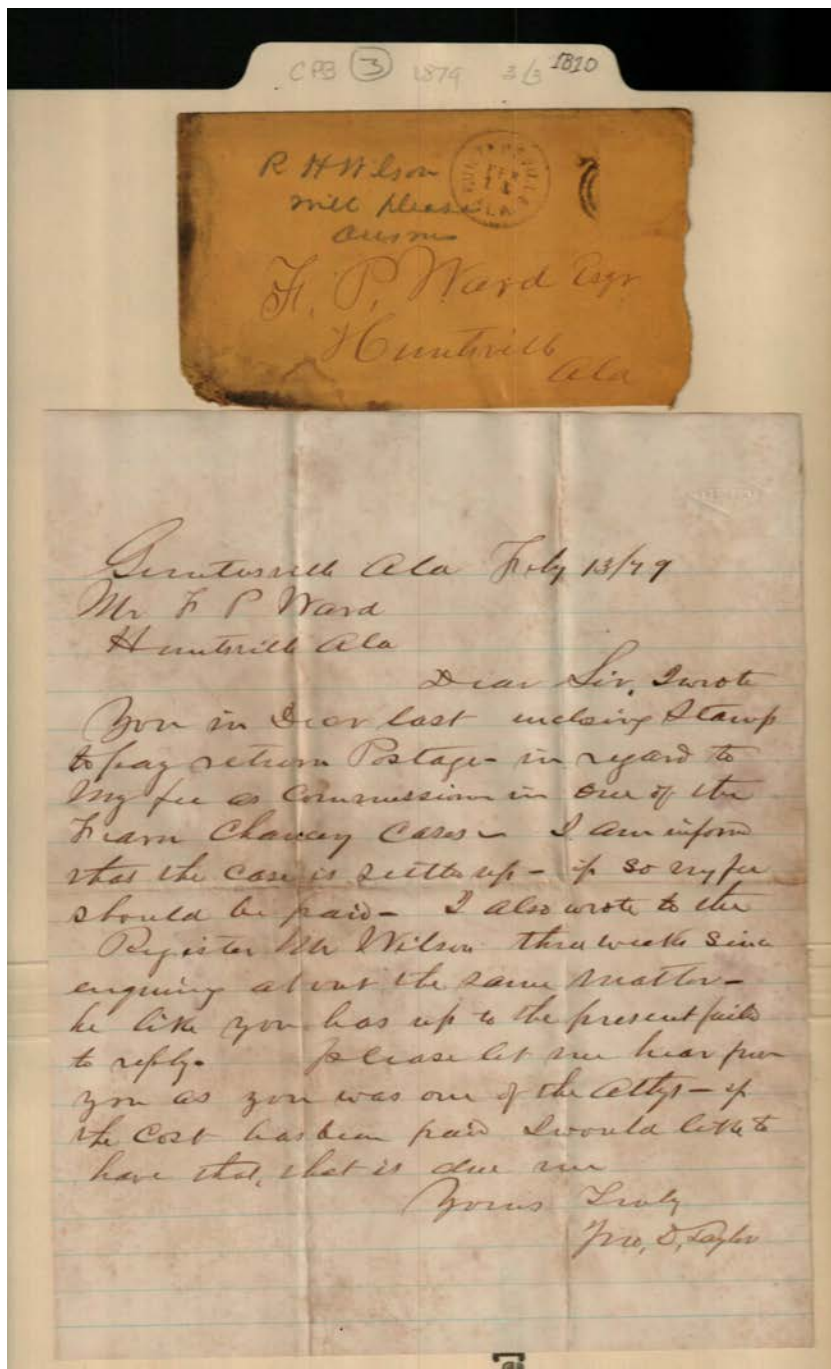 CPB 3 1879 3/3 1810
R H Wilson
will please
answer
F. P. Ward Esqr
Huntsvill
Ala
Guntersvill Ala Feby 13/79
Mr F P Ward
Huntsvill Ala
Dear Sir, I wrote
You in Decr last inclosing Stamp
to pay return Postage - in regard to
My fee as Commission in one of the
Fearn Chancy Cases - I am inform
that the case is settle up - if so my fee
should be paid - I also wrote to the
Register Mr Wilson three weeks since
enquiring about the same matter -
he like you has up to the present faild
to reply - please let me hear from
you as you was one of the Attys - if
the Cost has been paid I would like to
have that, that is due me
Yours Truly
Jno, D, Taylor